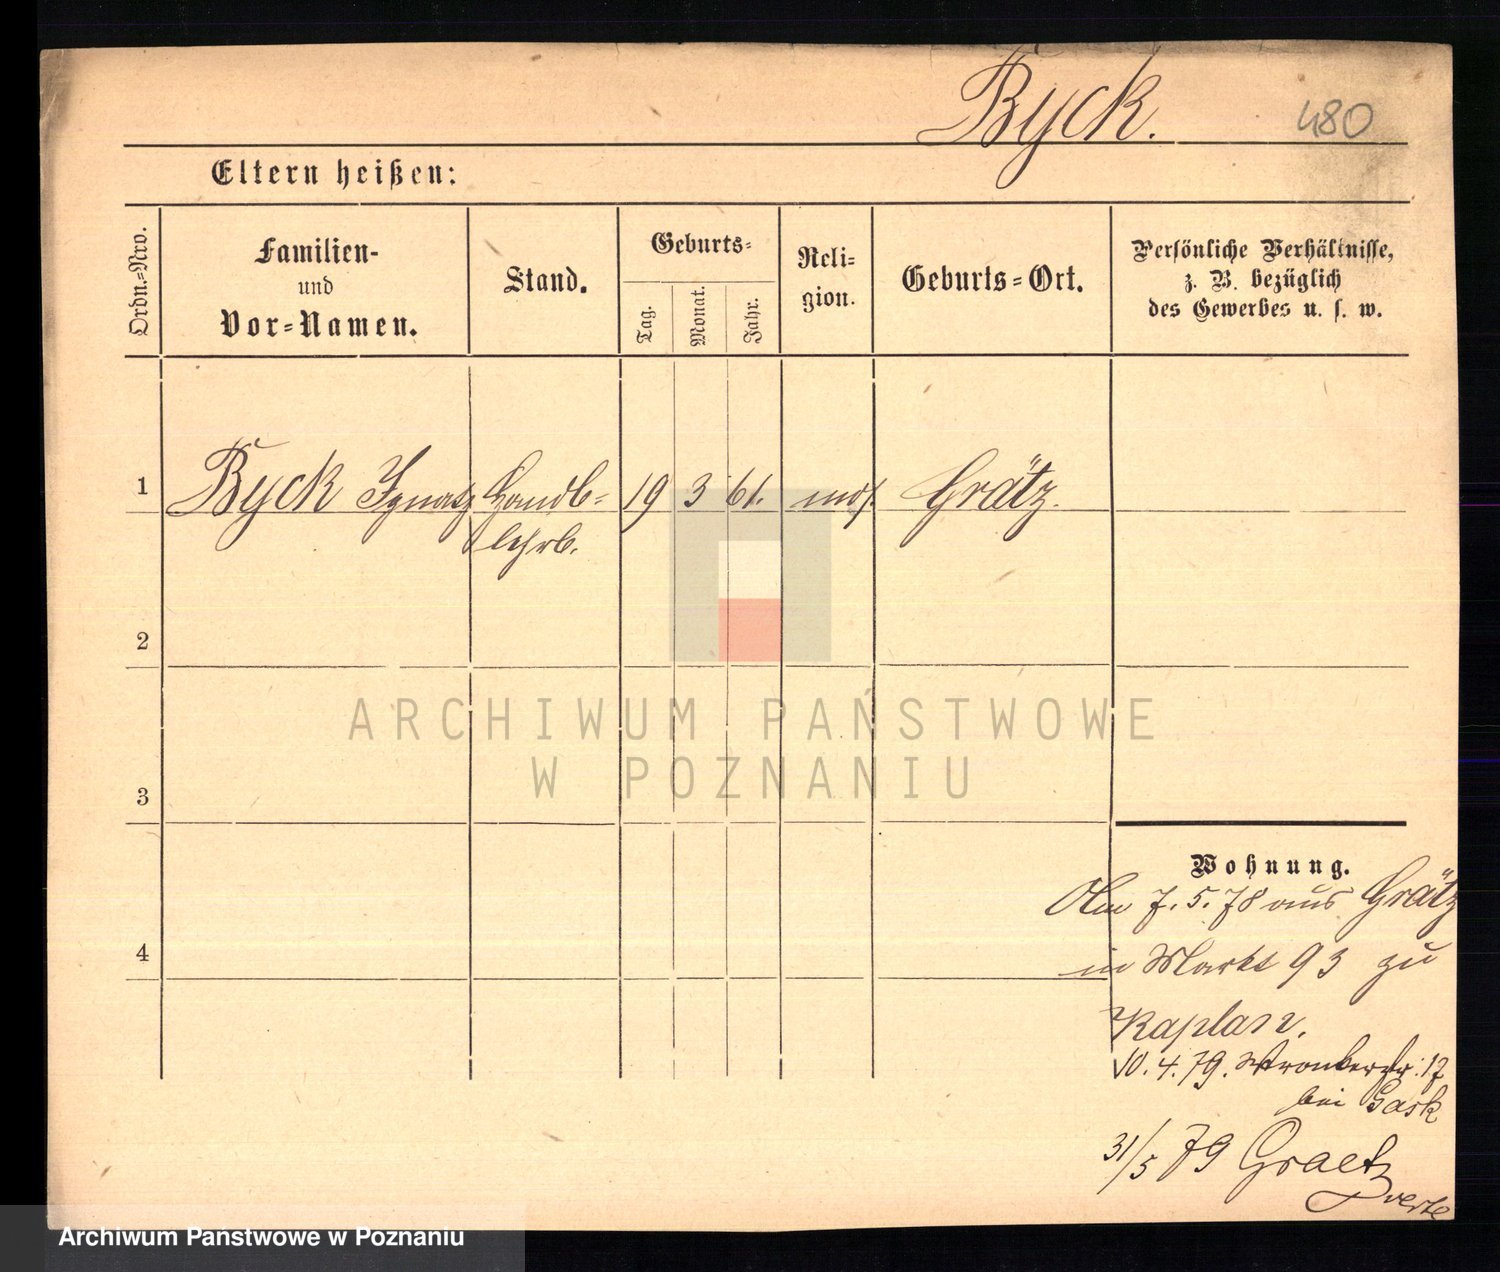 Byck. 480
Eltern heißen:
Ordn.-Nro.
Familien-
und
Vor-Namen.
Stand.
Geburts-
Tag.
Monat.
Jahr.
Reli-
gion.
Geburts-Ort.
Persönliche Verhältnisse,
z. B. bezüglich
des Gewerbes u. s. w.
1 Byck Ignatz Handl- 19 3 61. mos. Grätz.
lehrl.
2
3
4
Wohnung.
7. 5. 78 aus Grätz
in Markt 93 zu
Kaplan.
10. 4. 79. Wronkerstr. 17
bei Gask
31/5 79 Graetz
verte
ARCHIWUM PAŃSTWOWE
W POZNANIU
Archiwum Państwowe w Poznaniu